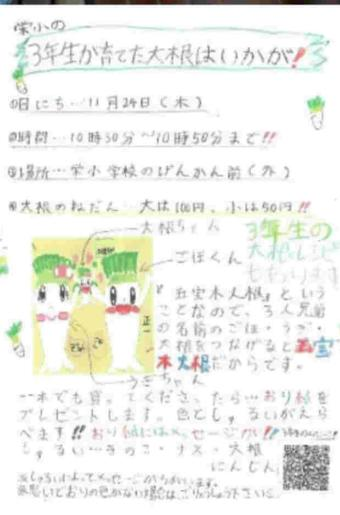 栄小の
3年生が育てた大根はいかが!
日にち…11月24日(木)
時間…10時30分〜10時50分まで!!
場所…栄小学校のげんかん前(外)
大根のねだん…大は100円、小は50円!!
大根ちゃん
3年生の
ごぼくん
『五宝木大根』という
ことなので、3人兄弟
の名前のごぼ・うぎ・
大根をつなげると五宝
木大根だからです。
うぎちゃん
一本でも買ってくださったら…おり紙を
プレゼントします。色としゅるいがえら
べます!!おり紙にはメッセージが!!
しゅるい…きのこ・ナス・大根
にんじん
※しゅるいによってメッセージがちがいます。